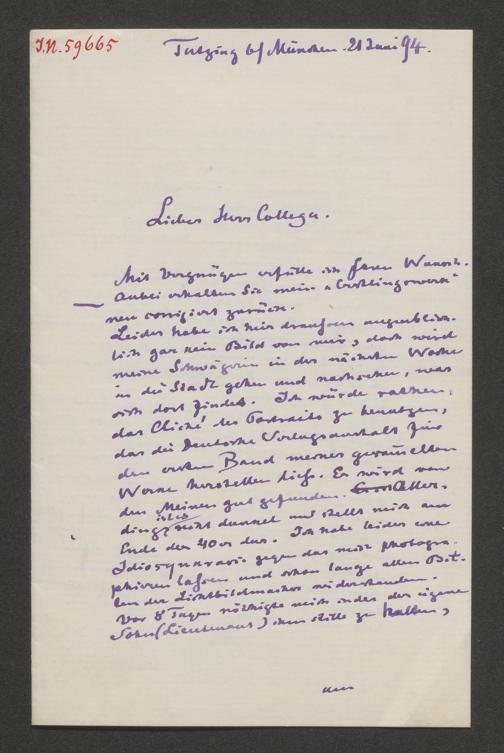 J.N. 59665
Tutzing b/ München. 21 Juni 94.
Lieber Herr College.
Mit Vergnügen erfülle ich Ihren Wunsch.
Anbei erhalten Sie mein „Erstlingswerk“
neu corrigiert zurück.
Leider habe ich hier draußen augenblick-
lich gar kein Bild von mir, doch wird
meine Schwägerin in der nächsten Woche
in die Stadt gehen und nachsehen, was
sich dort findet. Ich würde rathen,
das Cliché des Portraits zu benutzen,
das die Deutsche Verlagsanstalt für
den ersten Band meiner gesammelten
Werke herstellen ließ. Es wird von
den Meinen gut gefunden. Aller-
dings ist es nicht dunkel und stellt mich am
Ende der 40er dar. Ich habe leider eine
Idiosynkrasie gegen das mich photogra-
phiren lassen und schon lange allen Bit-
ten der Lichtbildmacher widerstanden.
Vor 8 Tagen nöthigte mich indes der eigene
Sohn (Lieutenant) ihm stille zu halten,